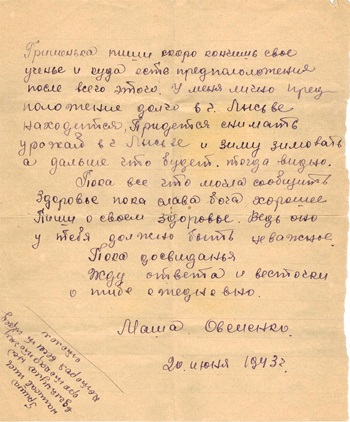 Гришенька пиши скоро кончишь свое
ученье и куда есть предположения
после всего этого. У меня лично пред
положение долго в г. Лысьве
находится, Придется снимать
урожай в г Лысьве и зиму зимовать
а дальше что будет, тогда видно.
Пока все что могла сообщить
Здоровье пока слава бога хорошее
Пиши о своем здоровье. Ведь оно
у тебя должно быть неважное
Пока досвиданья
Жду ответа и весточки
о тибе ежедневно.
Маша Овсиенко.
20 июня 1943г.
Гриша